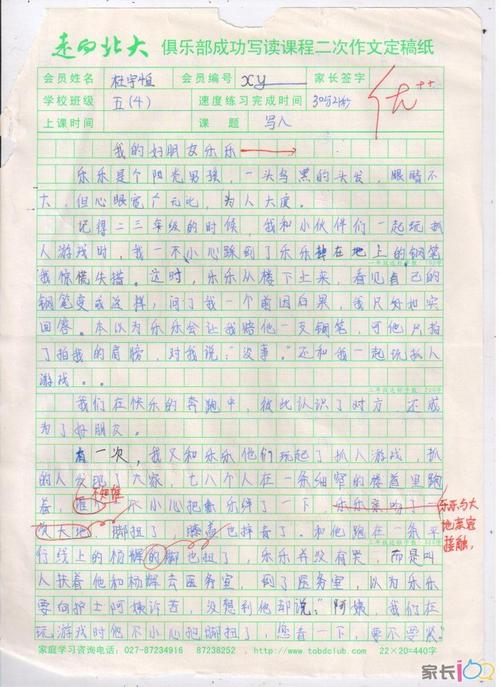 走向北大 俱乐部成功写读课程二次作文定稿纸
会员姓名 杜宇恒 会员编号 xy 家长签字
学校班级 五(4) 速度练习完成时间 30分21秒
上课时间 课题 写人
优++
我的好朋友乐乐
乐乐是个阳光男孩，一头乌黑的头发，眼睛不
大，但心眼宽广无比，为人大度。
记得二三年级的时候，我和小伙伴们一起玩抓
人游戏时，我一不小心踩到了乐乐掉在地上的钢笔
我惊慌失措。这时，乐乐从楼下上来，看见自己的
钢笔变成这样，问了我一个前因后果，我只好如实
回答。本以为乐乐会让我赔他一支钢笔，可他只拍
了拍我的肩膀，对我说：“没事。”还和我一起玩抓人
游戏。。
我们在快乐的奔跑中，彼此认识了对方，还成
为了好朋友。
有一次，我又和乐乐他们玩起了抓人游戏，抓
的人发现了大家，七八个人在一条细窄的楼道里跑
着，不知谁
不小心把乐乐绊了一下，乐乐亲吻了一
乐乐与大地亲密接触，
次大地，脚扭了，膝盖也摔青了。和他跑在一条平
行线上的杨辉的脚也扭了，乐乐并没有哭，而是叫
人扶着他和杨辉去医务室，到了医务室，以为乐乐
要向护士阿姨诉苦，没想到他却说：“阿姨，我们在
玩游戏时他不小心把脚扭了，您看一下，要不要紧。”
家庭学习咨询电话：027-87234916 87238252 http://www.tobdclub.com 22×20=440字
家长100